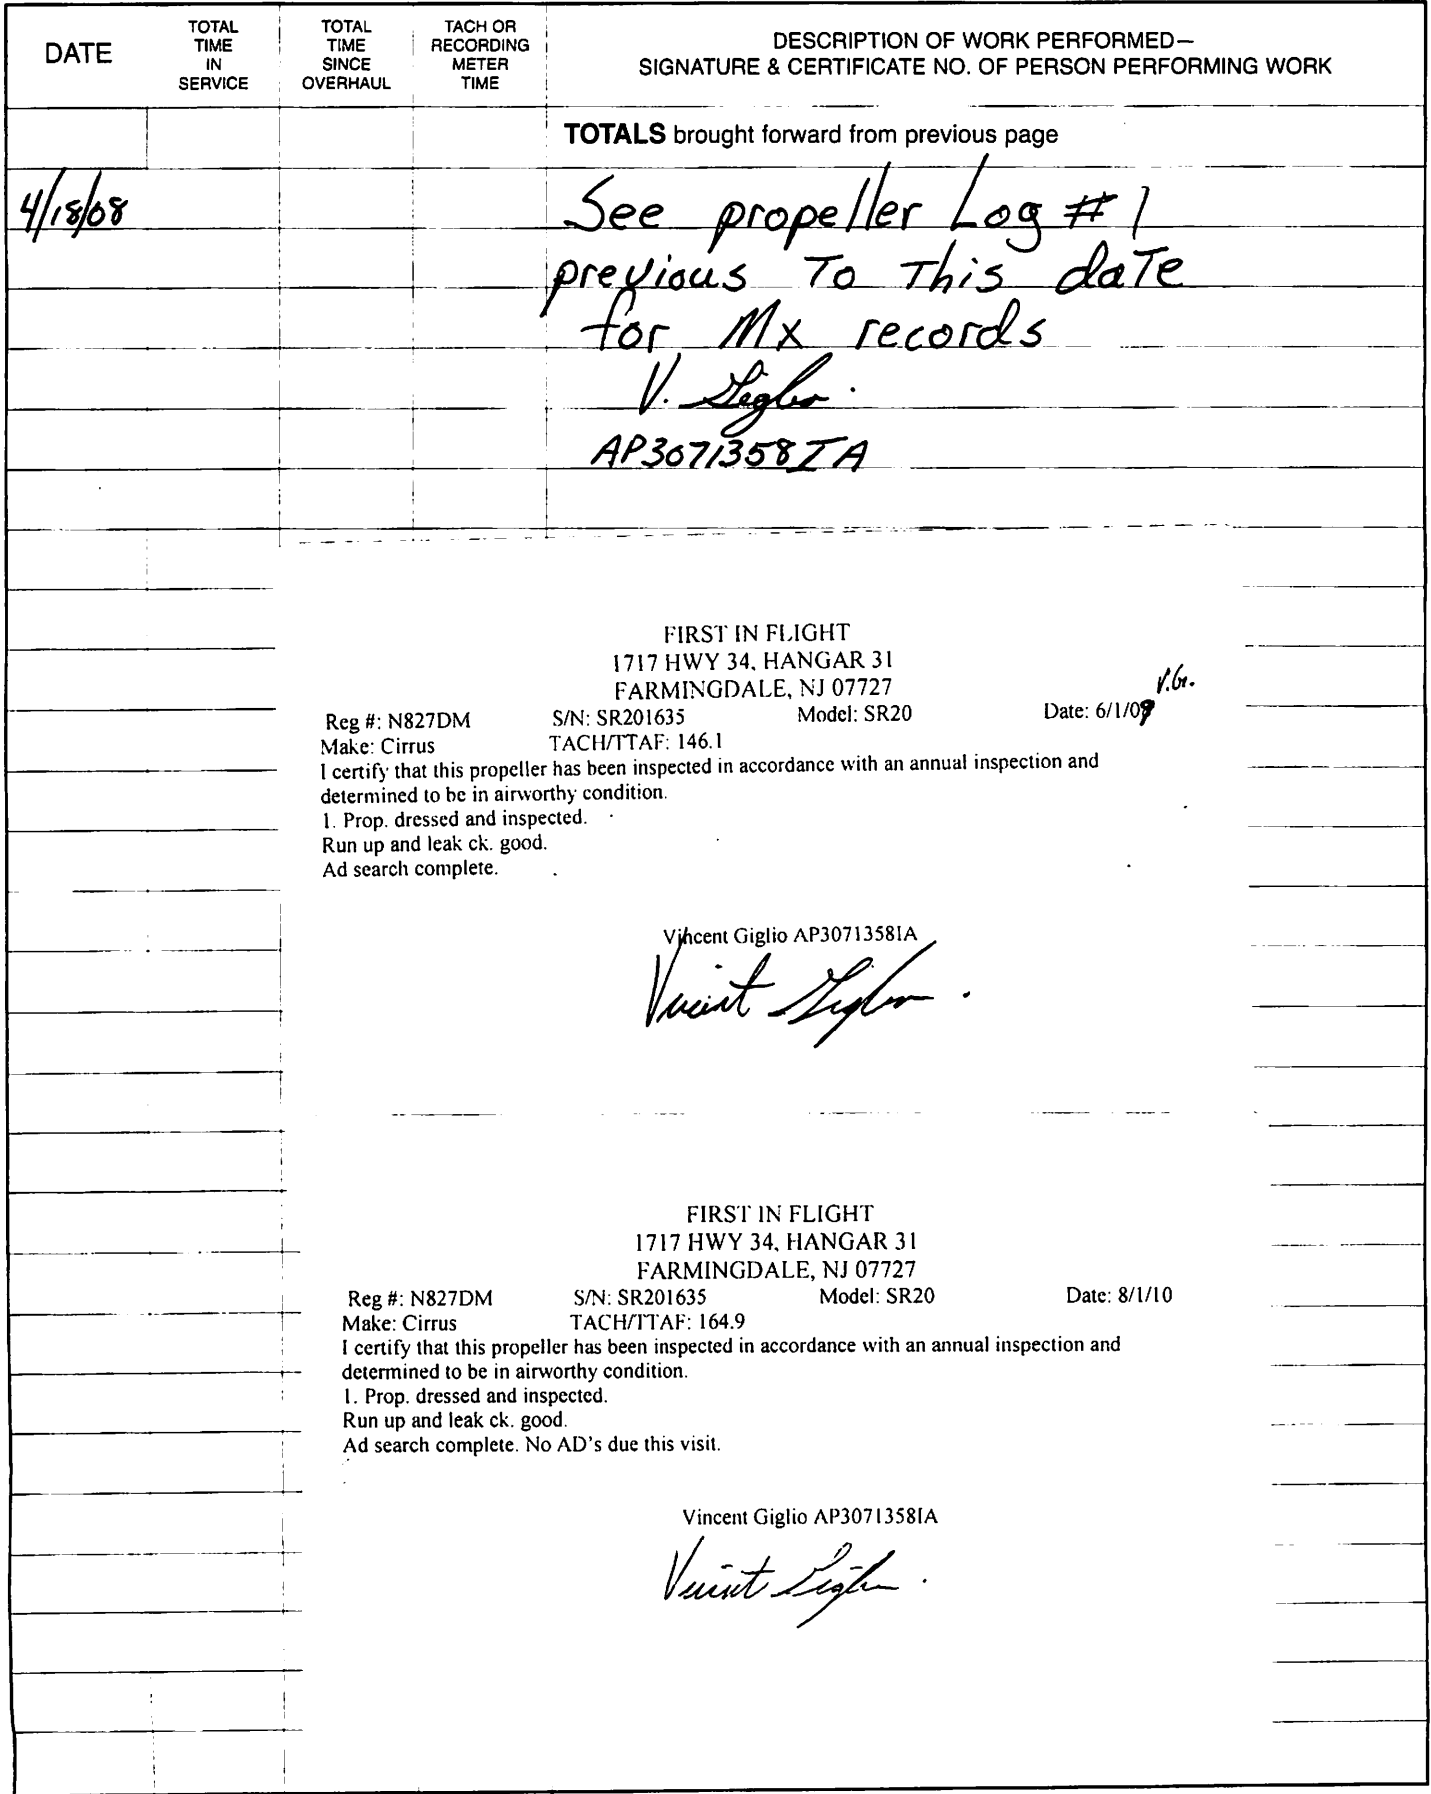 DATE
TOTAL TIME IN SERVICE
TOTAL TIME SINCE OVERHAUL
TACH OR RECORDING METER TIME
DESCRIPTION OF WORK PERFORMED—
SIGNATURE & CERTIFICATE NO. OF PERSON PERFORMING WORK
TOTALS brought forward from previous page
4/18/08 See propeller Log # 1
previous To This date
for Mx records
V. Giglio
AP3071358IA
FIRST IN FLIGHT
1717 HWY 34, HANGAR 31
FARMINGDALE, NJ 07727
V.G.
Reg #: N827DM S/N: SR201635 Model: SR20 Date: 6/1/09
Make: Cirrus TACH/TTAF: 146.1
I certify that this propeller has been inspected in accordance with an annual inspection and
determined to be in airworthy condition.
1. Prop. dressed and inspected.
Run up and leak ck. good.
Ad search complete.
Vincent Giglio AP3071358IA
Vincent Giglio
FIRST IN FLIGHT
1717 HWY 34, HANGAR 31
FARMINGDALE, NJ 07727
Reg #: N827DM S/N: SR201635 Model: SR20 Date: 8/1/10
Make: Cirrus TACH/TTAF: 164.9
I certify that this propeller has been inspected in accordance with an annual inspection and
determined to be in airworthy condition.
1. Prop. dressed and inspected.
Run up and leak ck. good.
Ad search complete. No AD's due this visit.
Vincent Giglio AP3071358IA
Vincent Giglio